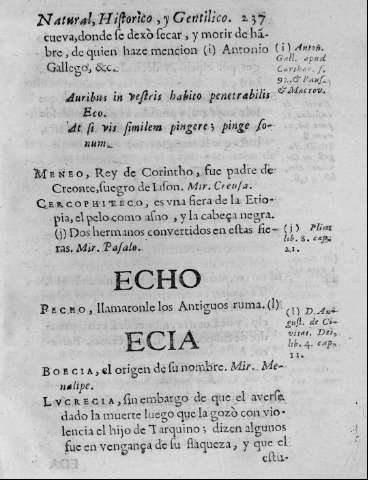 Natural, Historico, y Gentilico. 237
cueva, donde se dexò secar, y morir de há-
bre, de quien haze mencion (i) Antonio
Gallego, &c.
(i) Anton.
Gall. apud
Carthar. f.
& Pausa,
& Macrov.
Auribus in vestris habito penetrabilis
Eco.
At si vis similem pingere; pinge so-
num.
MENEO, Rey de Corintho, fue padre de
Creonte, suegro de Iason. Mir. Creusa.
CERCOPHITECO, es vna fiera de la Etio-
pia, el pelo como asno, y la cabeça negra.
(j) Dos hermanos convertidos en estas fie-
ras. Mir. Pasalo.
(j) Plini
lib. 8. cap.
21.
ECHO
PECHO, llamaronle los Antiguos ruma. (l)
(l) D. Au-
gust. de Ci-
vitat. Dei,
lib. 4. cap.
11.
ECIA
BOECIA, el origen de su nombre. Mir. Me-
nalipe.
LVCRECIA, sin embargo de que el averse
dado la muerte luego que la gozò con vio-
lencia el hijo de Tarquino; dizen algunos
fue en vengança de su flaqueza, y que el
estu-